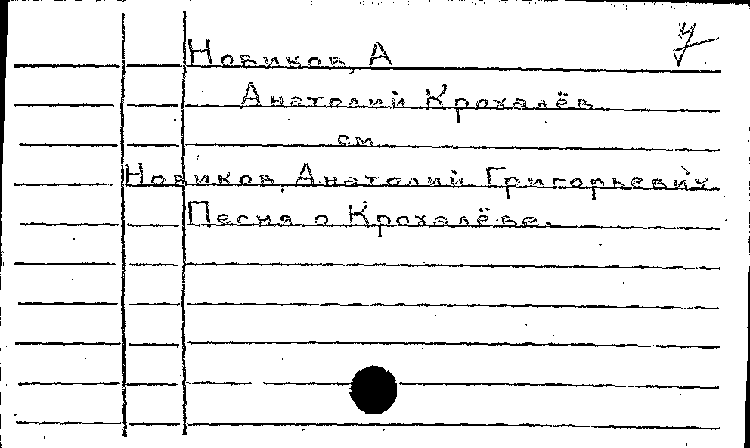 Новиков, А
Анатолий Крохалёв
см.
Новиков, Анатолий Григорьевич
Песня о Крохалёве.